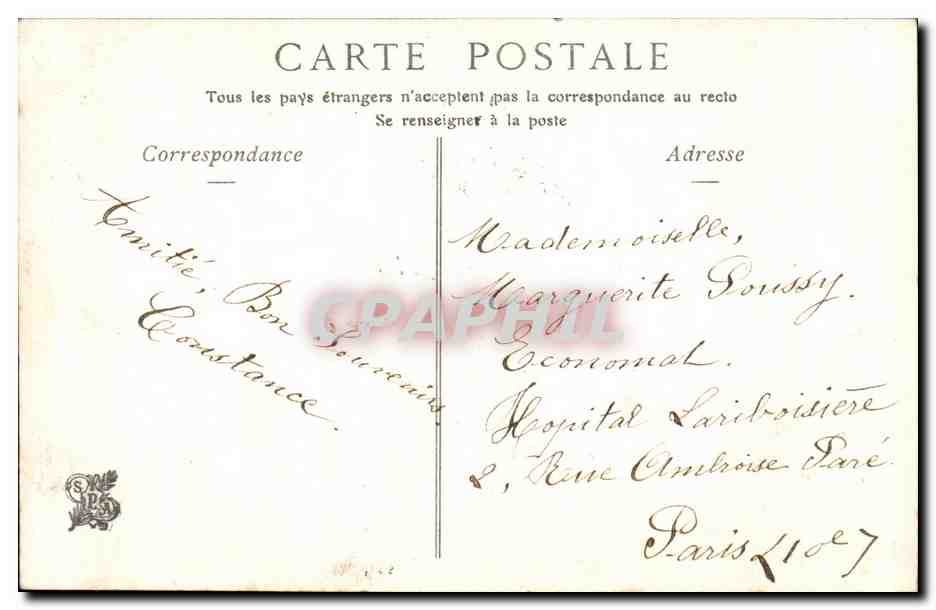 CARTE POSTALE
Tous les pays étrangers n'acceptent pas la correspondance au recto
Se renseigner à la poste
Correspondance
Amitié, Bon Souvenirs
Constance.
Adresse
Mademoiselle,
Marguerite Poussy.
Economat.
Hopital Lariboisière
2, Rue Ambroise Paré
Paris (10e)
CPAPHIL
SPA